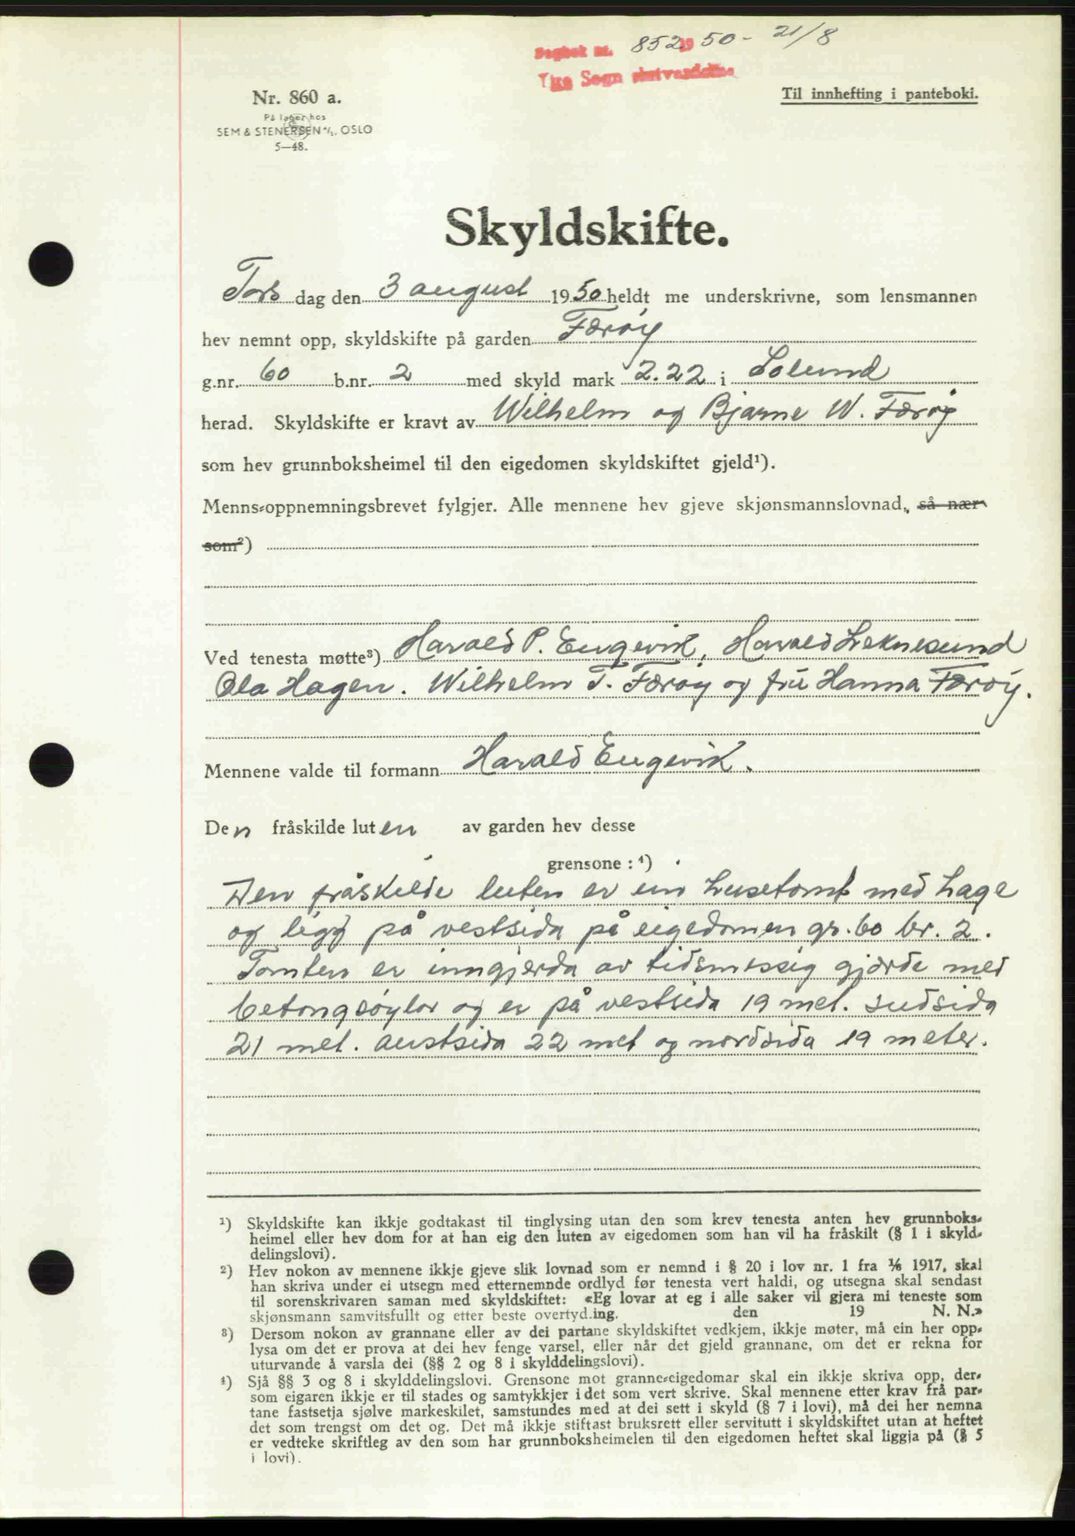 Dagbok nr. 852 1950 - 21/8
Ytre Sogn skrivardøme
Nr. 860 a.
Til innhefting i panteboki.
På lager hos
SEM & STENERSEN A/S, OSLO
5—48.
Skyldskifte.
Tors dag den 3 august 1950 heldt me underskrivne, som lensmannen
hev nemnt opp, skyldskifte på garden Færøy
g.nr. 60 b.nr. 2 med skyld mark 2.22 i Solund
herad. Skyldskifte er kravt av Wilhelm og Bjarne W. Færøy
som hev grunnboksheimel til den eigedomen skyldskiftet gjeld¹).
Menns-oppnemningsbrevet fylgjer. Alle mennene hev gjeve skjønsmannslovnad, så nær
som²)
Ved tenesta møtte³) Harald P. Engevik, Harald Leknesund
Ola Hagen. Wilhelm T. Færøy og fru Hanna Færøy.
Mennene valde til formann Harald Engevik.
Den fråskilde luten av garden hev desse
grensone : ⁴)
Den fråskilde luten er ein husetomt med hage
og ligg på vestsida på eigedomen gr. 60 br. 2.
Tomten er inngjerda av tidsmessig gjerde med
betongsøylor og er på vestsida 19 met. sudsida
21 met. austsida 22 met og nordsida 19 meter.
¹) Skyldskifte kan ikkje godtakast til tinglysing utan den som krev tenesta anten hev grunnboks-
heimel eller hev dom for at han eig den luten av eigedomen som han vil ha fråskilt (§ 1 i skyld-
delingslovi).
²) Hev nokon av mennene ikkje gjeve slik lovnad som er nemnd i § 20 i lov nr. 1 fra 1/6 1917, skal
han skriva under ei utsegn med etternemnde ordlyd før tenesta vert haldi, og utsegna skal sendast
til sorenskrivaren saman med skyldskiftet: «Eg lovar at eg i alle saker vil gjera mi teneste som
skjønsmann samvitsfullt og etter beste overtyding. den 19 N. N.»
³) Dersom nokon av grannane eller av dei partane skyldskiftet vedkjem, ikkje møter, må ein her opp-
lysa om det er prova at dei hev fenge varsel, eller når det gjeld grannane, om det er rekna for
uturvande å varsla dei (§§ 2 og 8 i skylddelingslovi).
⁴) Sjå §§ 3 og 8 i skylddelingslovi. Grensone mot granne-eigedomar skal ein ikkje skriva opp, der-
som eigaren ikkje er til stades og samtykkjer i det som vert skrive. Skal mennene etter krav frå par-
tane fastsetja sjølve markeskilet, samstundes med at dei sett i skyld (§ 7 i lovi), må dei her nemna
det som trengst om det og. Det må ikkje stiftast bruksrett eller servitutt i skyldskiftet utan at heftet
er vedteke skriftleg av den som har grunnboksheimelen til den eigedomen heftet skal liggja på (§ 5
i lovi).